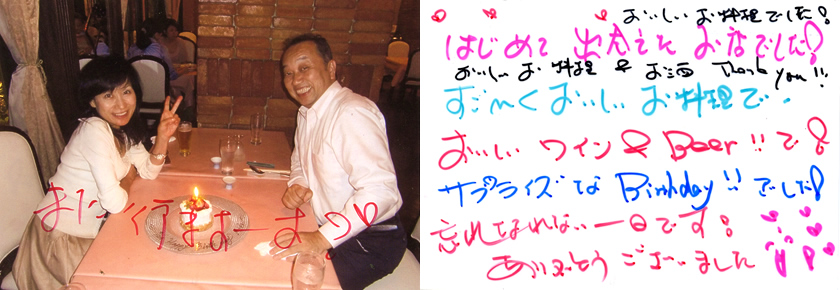 また行きまーす♡♡
おいしいお料理でした!
はじめて出会えたお店でした!
おいしいお料理&お酒 Thank you!!
すご〜くおいしいお料理で..
おいしいワイン&Beer!!で!
サプライズなBirthday!!でした!
忘れられない一日です!
ありがとうございました